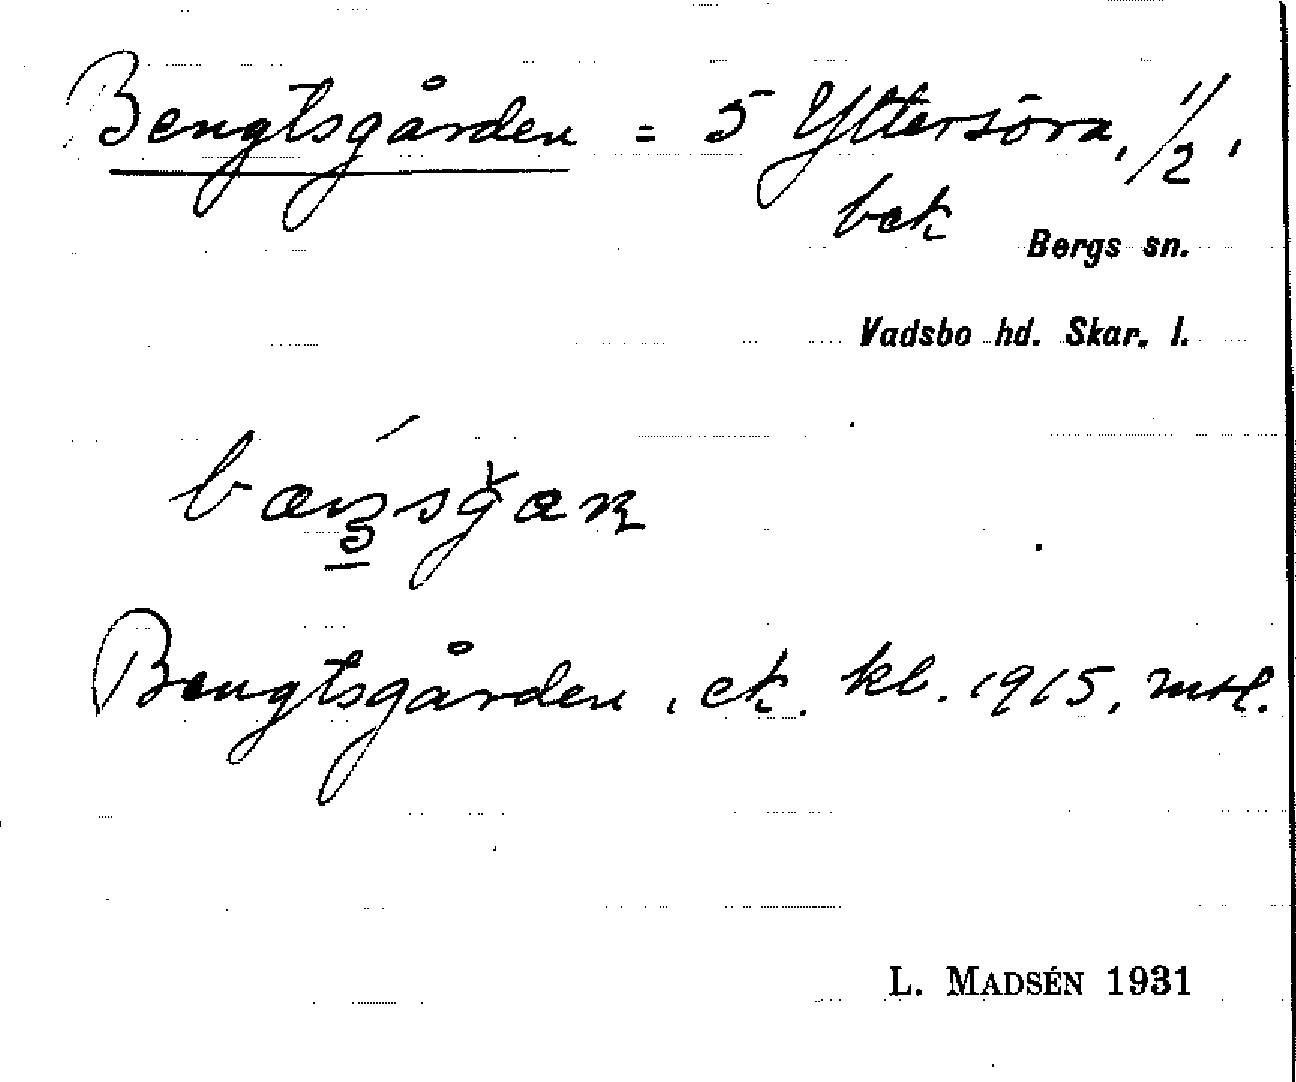 Bengtsgården = 5 Yttersöra, 1/2,
bek
Bergs sn.
Vadsbo hd. Skar. l.
Bengtsgården, ek. kl. 1915, mtl.
L. MADSÉN 1931